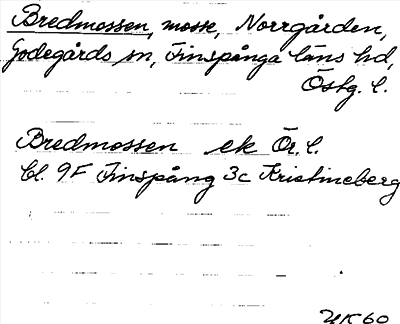 Bredmossen, mosse, Norrgården,
Godegårds sn, Finspånga läns hd,
Östg. l.
Bredmossen ek Ör. l.
bl. 9F Finspång 3c Kristineberg
UK60